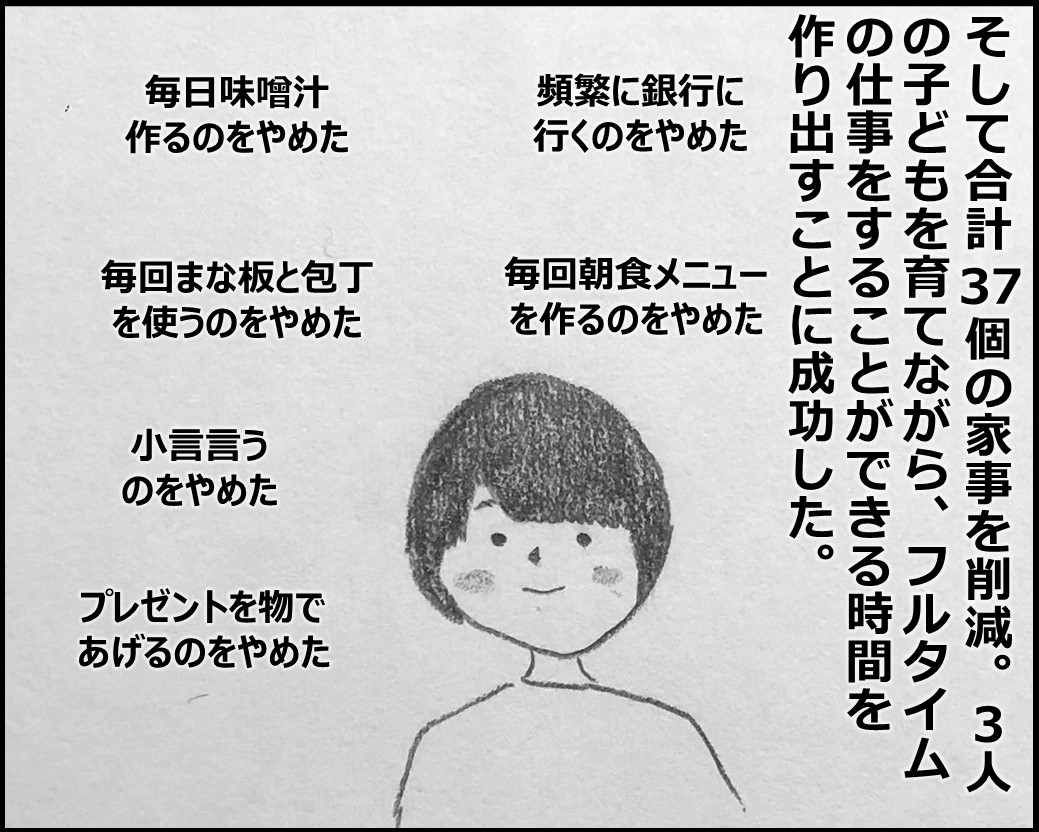 そして合計37個の家事を削減。3人
の子どもを育てながら、フルタイム
の仕事をすることができる時間を
作り出すことに成功した。
頻繁に銀行に
行くのをやめた
毎日味噌汁
作るのをやめた
毎回朝食メニュー
を作るのをやめた
毎回まな板と包丁
を使うのをやめた
小言言う
のをやめた
プレゼントを物で
あげるのをやめた